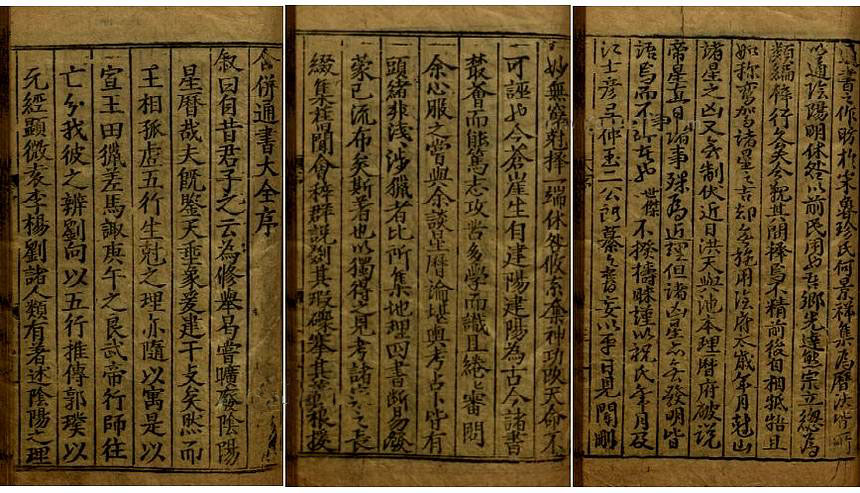 合併通書大全序
叙曰自昔君子之云為修舉曷嘗曠廢陰陽
星曆哉夫旣鑒天垂象爰建干支矣然而
王相孤虛五行生尅之理亦隨以寓是以
宣王田獵差馬諏庚午之良武帝行師往
亡分我彼之辨劉向以五行推傳郭璞以
元經顯微袁李楊劉諸人類有著述陰陽之理
妙無窮尅擇一端休咎攸系奪神功改天命不
可誣也今蒼崖生自建陽建陽為古今諸書
叢薈而能篤志攻苦多學而識且綣〻審問
余心服之嘗與余談星曆論堪輿考占卜皆有
頭緒非淺涉獵者比所集地理四書斷易發
蒙已流布矣斯著也以獨得之見考諸之長
綴集聞會稡群説剗其瑕礫搴其稂援
通書之作昉於宋魯珍氏何景祥集為曆法皆所
以通陰陽明休咎以前民用也吾鄉先達熊宗立總為
類編條行久矣今觀其開擇焉不精前後自相牴牾且
如称鸞駕諸星之吉却無施用法府太歲年月尅山
諸星之凶又無制伏近日洪天與池本理曆府破説
帝星直日諸事殊為近理但諸凶星亦無發明皆
語焉而不詳者也世傑不揆檮昧謹以祝氏年月及
江士彥吳仲玉二公門纂書妄以平日見聞刪